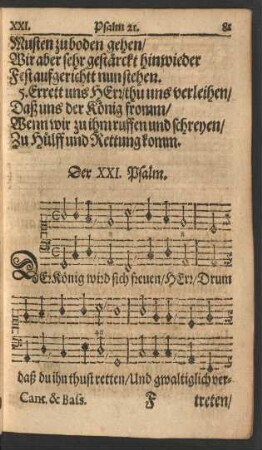 XXI. Psalm 21. 81
Musten zu boden gehen/
Wir aber sehr gestärckt hinwieder
Fest auffgerichtt nun stehen.
5. Errett uns HErr/thu uns verleihen/
Daß uns der König fromm/
Wenn wir zu ihm ruffen und schreyen/
Zu Hülff und Rettung komm.
Der XXI. Psalm.
DEr König wird sich freuen/HErr/Drum
daß du ihn thust retten/Und gwaltiglich ver-
Cant. & Bass. F treten/